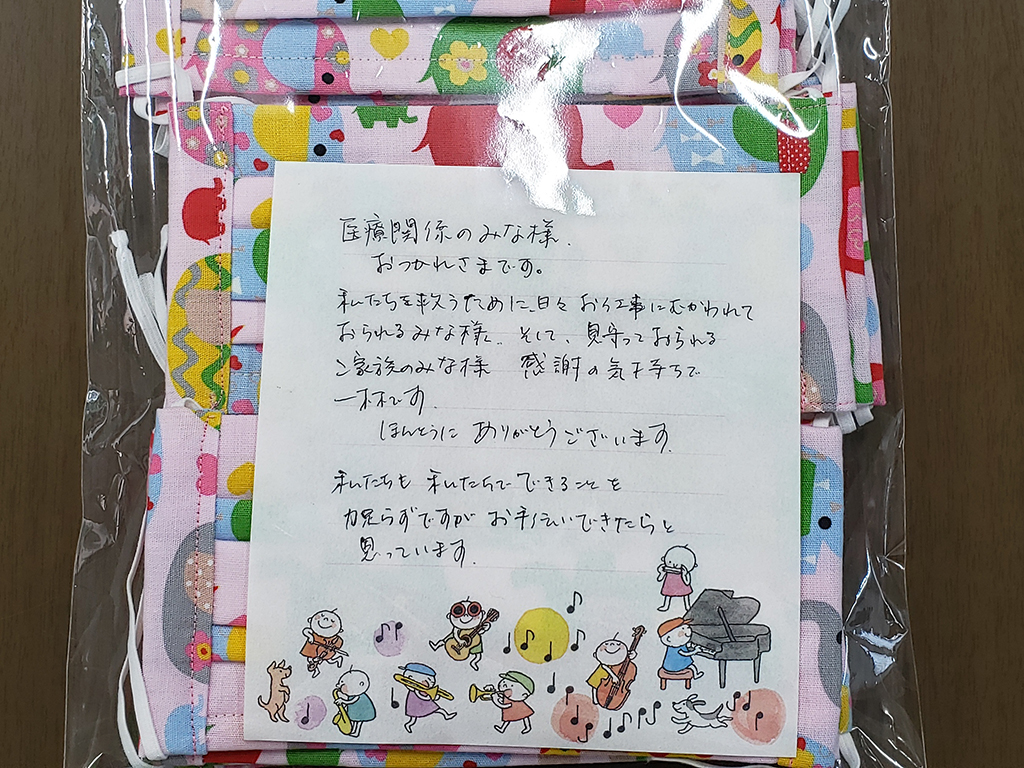 医療関係のみな様.
おつかれさまです。
私たちを救うために日々お仕事にむかわれて
おられるみな様と.そして、見守っておられる
ご家族のみな様 感謝の気持ちで
一杯です.
ほんとうに ありがとうございます.
私たちも 私たちで できることを
微力ながらですが お手伝いできたらと
思っています.